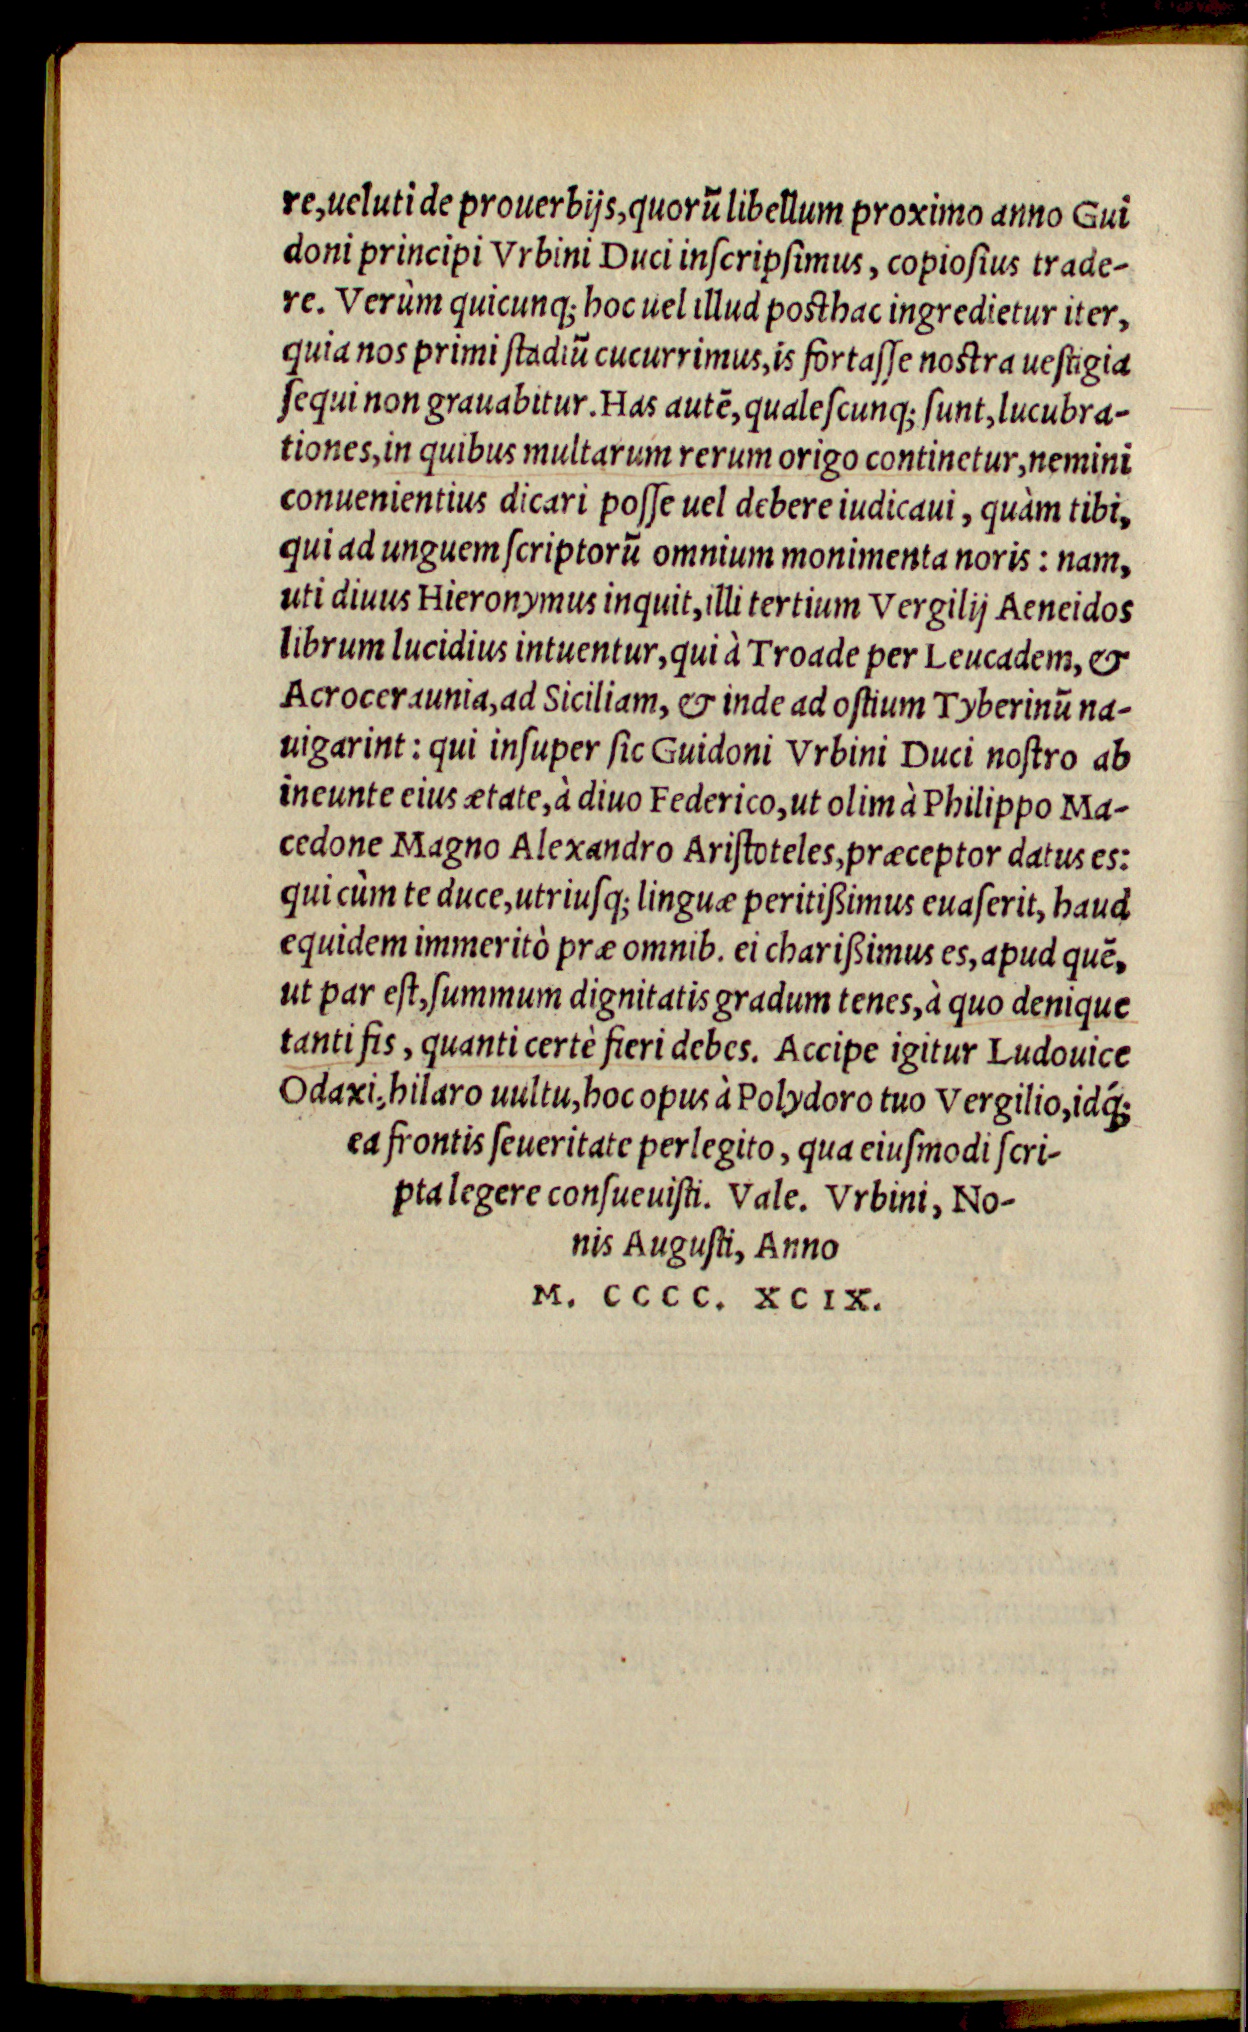 re, ueluti de prouerbijs, quorū libellum proximo anno Gui
doni principi Vrbini Duci inſcripſimus, copioſius trade-
re. Verùm quicunq; hoc uel illud poſthac ingredietur iter,
quia nos primi ſtadiū cucurrimus, is fortaſſe noſtra ueſtigia
ſequi non grauabitur. Has autē, qualeſcunq; ſunt, lucubra-
tiones, in quibus multarum rerum origo continetur, nemini
conuenientius dicari poſſe uel debere iudicaui, quàm tibi,
qui ad unguem ſcriptorū omnium monimenta noris: nam,
uti diuus Hieronymus inquit, illi tertium Vergilij Aeneidos
librum lucidius intuentur, qui à Troade per Leucadem, &
Acroceraunia, ad Siciliam, & inde ad oſtium Tyberinū na-
uigarint: qui inſuper ſic Guidoni Vrbini Duci noſtro ab
ineunte eius ætate, à diuo Federico, ut olim à Philippo Ma-
cedone Magno Alexandro Ariſtoteles, præceptor datus es:
qui cùm te duce, utriuſq; linguæ peritißimus euaſerit, haud
equidem immeritò præ omnib. ei charißimus es, apud quē,
ut par eſt, ſummum dignitatis gradum tenes, à quo denique
tanti fis, quanti certè fieri debes. Accipe igitur Ludouice
Odaxi, hilaro uultu, hoc opus à Polydoro tuo Vergilio, idq́;
ea frontis ſeueritate perlegito, qua eiuſmodi ſcri-
pta legere conſueuiſti. Vale. Vrbini, No-
nis Auguſti, Anno
M. CCCC. XCIX.